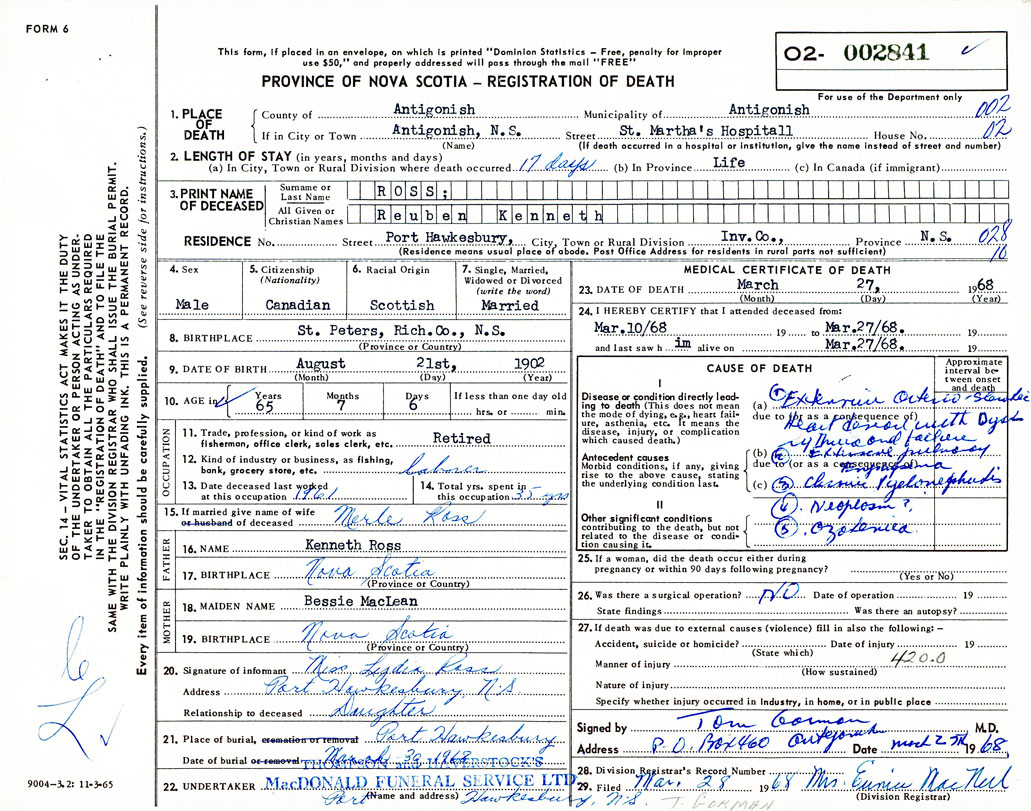 FORM 6
This form, if placed in an envelope, on which is printed "Dominion Statistics – Free, penalty for improper
use $50," and properly addressed will pass through the mail "FREE"
PROVINCE OF NOVA SCOTIA – REGISTRATION OF DEATH
O2- 002841 ✓
For use of the Department only
1. PLACE OF DEATH
County of Antigonish Municipality of Antigonish 002
If in City or Town Antigonish, N.S. Street St. Martha's Hospitall House No. 02
(Name) (If death occurred in a hospital or institution, give the name instead of street and number)
2. LENGTH OF STAY (in years, months and days)
(a) In City, Town or Rural Division where death occurred 17 days (b) In Province Life (c) In Canada (if immigrant)
3. PRINT NAME OF DECEASED
Surname or Last Name ROSS;
All Given or Christian Names Reuben Kenneth
RESIDENCE No. Street Port Hawkesbury, City, Town or Rural Division Inv.Co., Province N.S. 028
(Residence means usual place of abode. Post Office Address for residents in rural parts not sufficient) 16
4. Sex Male
5. Citizenship (Nationality) Canadian
6. Racial Origin Scottish
7. Single, Married, Widowed or Divorced (write the word) Married
8. BIRTHPLACE St. Peters, Rich.Co., N.S.
(Province or Country)
9. DATE OF BIRTH August 21st, 1902
(Month) (Day) (Year)
10. AGE in ✓ Years 65 Months 7 Days 6 If less than one day old hrs. or min.
OCCUPATION
11. Trade, profession, or kind of work as fisherman, office clerk, sales clerk, etc. Retired
12. Kind of industry or business, as fishing, bank, grocery store, etc. Laborer
13. Date deceased last worked at this occupation 1961
14. Total yrs. spent in this occupation 35 yrs
15. If married give name of wife or husband of deceased Merle Ross
FATHER
16. NAME Kenneth Ross
17. BIRTHPLACE Nova Scotia
(Province or Country)
MOTHER
18. MAIDEN NAME Bessie MacLean
19. BIRTHPLACE Nova Scotia
(Province or Country)
20. Signature of informant Miss Lydia Ross
Address Port Hawkesbury, N.S
Relationship to deceased Daughter
21. Place of burial, cremation or removal Port Hawkesbury
Date of burial or removal March 30, 1968
THOMPSON and HAVERSTOCK'S
22. UNDERTAKER MacDONALD FUNERAL SERVICE LTD
(Name and address) Port Hawkesbury, N.S.
MEDICAL CERTIFICATE OF DEATH
23. DATE OF DEATH March 27, 1968
(Month) (Day) (Year)
24. I HEREBY CERTIFY that I attended deceased from:
Mar.10/68 19 to Mar.27/68. 19
and last saw h im alive on Mar.27/68. 19
CAUSE OF DEATH
Approximate interval between onset and death
I
Disease or condition directly leading to death (This does not mean the mode of dying, e.g., heart failure, asthenia, etc. It means the disease, injury, or complication which caused death.)
(a) ① Extensive Arterio-Sclerotic
due to (or as a consequence of)
Heart disease with Dysrhythmia and failure
Antecedent causes
Morbid conditions, if any, giving rise to the above cause, stating the underlying condition last.
(b) ② Extensive pulmonary
due to (or as a consequence of)
Emphysema
(c) ③ Chronic Pyelonephritis
II
Other significant conditions contributing to the death, but not related to the disease or condition causing it.
④. Neoplasm?
⑤.
25. If a woman, did the death occur either during
pregnancy or within 90 days following pregnancy?
(Yes or No)
26. Was there a surgical operation? NO Date of operation 19
State findings Was there an autopsy?
27. If death was due to external causes (violence) fill in also the following: –
Accident, suicide or homicide? Date of injury 19
(State which) 420.0
Manner of injury
(How sustained)
Nature of injury
Specify whether injury occurred in industry, in home, or in public place
Signed by Tom Gorman M.D.
Address P.O. Box 460 Antigonish Date 1968
28. Division Registrar's Record Number
29. Filed Mar. 28 1968 Mrs. Eunice MacNeil
(Division Registrar)
T. GORMAN
SEC. 14 – VITAL STATISTICS ACT MAKES IT THE DUTY
OF THE UNDERTAKER OR PERSON ACTING AS UNDER-
TAKER TO OBTAIN ALL THE PARTICULARS REQUIRED
IN THE "REGISTRATION OF DEATH" AND TO FILE THE
SAME WITH THE DIVISION REGISTRAR WHO SHALL ISSUE THE BURIAL PERMIT.
WRITE PLAINLY WITH UNFADING INK. THIS IS A PERMANENT RECORD.
Every item of information should be carefully supplied. (See reverse side for instructions.)
9004-3.2: 11-3-65